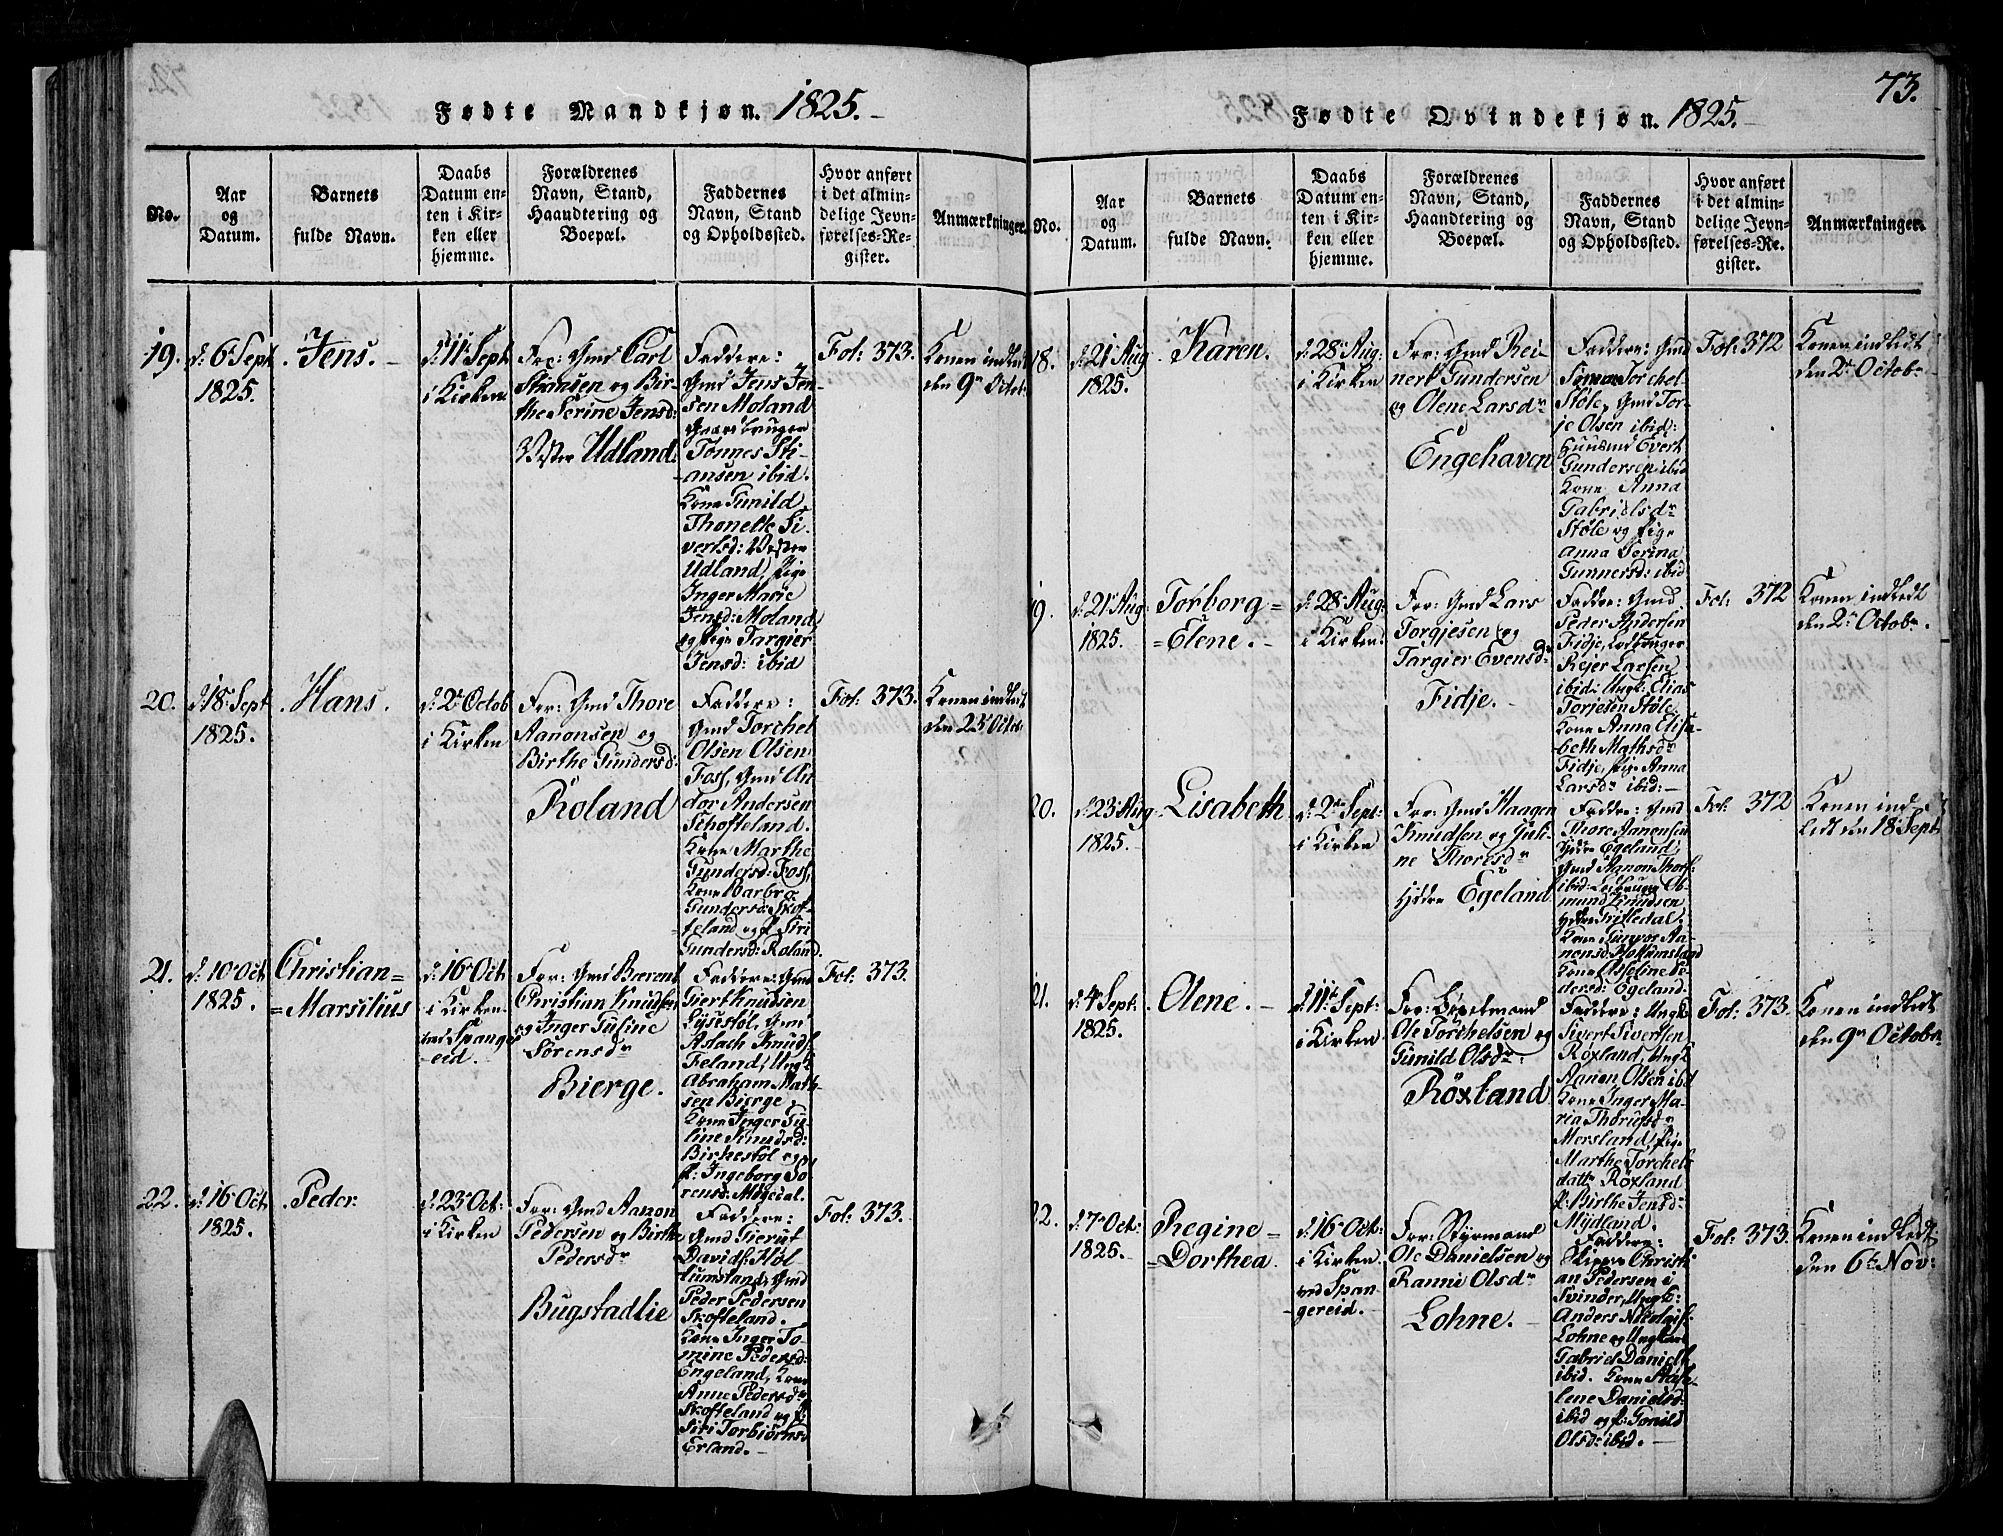 Fødte Mandkjøn. 1825.
No.
Aar
og
Datum.
Barnets
fulde Navn.
Daabs
Datum en-
ten i Kir-
ken eller
hjemme.
Forældrenes
Navn, Stand,
Haandtering og
Boepæl.
Faddernes
Navn, Stand
og Opholdssted.
Hvor anført
i det almin-
delige Jevn-
førelses-Re-
gister.
Anmærkninger.
19.
d: 6 Sept
1825.
Jens.
d: 11 Sept
i Kirken
For: Gmd Carl
Stiansen og Bir-
the Serine Jensd:
Vster Udland.
Faddere:
Gmd Jens Jen-
sen Moland
Gaardbruger
Tønnes Sti-
ansen ibid.
Kone Gunild
Thonette Si-
vertsd: Vester
Udland, Pige
Inger Marie
Jensd: Moland
og Pige Targier
Jensd: ibid
Fol: 373.
Konen indledt
den 9 Octob:
20.
d: 18 Sept
1825.
Hans.
d: 2 Octob
i Kirken
For: Gmd Thore
Aanonsen og
Birthe Gundersd:
Roland
Faddere:
Gmd Torchel
Olsen Olsen
Foss, Gmd An-
dor Andersen
Schofteland.
Kone Marthe
Gundersd: Foss,
Kone Barbro
Gundersd: Skof-
teland og P. Siri
Gundersd: Roland.
Fol: 373.
Konen indledt
den 23 Octob
21.
d: 10 Oct
1825.
Christian=
=Marsilius
d: 16 Oct
i Kirken
ved Spange-
eid.
For: Gmd Berent
Christian Knudsen
og Inger Guline
Sørensdr
Bierge.
Faddere: Gmd
Giert Knudsen
Lysestøl, Gmd
Aslach Knuds
Feland, Ungk
Abraham Math-
sen Bierge,
Kone Inger Gu-
line Knudsd:
Birkestøl og
P. Ingeborg Sø-
rensd: Møgedal.
Fol: 373.
22.
d: 16 Oct
1825.
Peder
d: 23 Oct:
i Kirken
For: Gmd Aanon
Pedersen og Birthe
Pedersdr
Bugstadlie
Faddere:
Gmd Gierut
Davids: Høl
lumsland, Gmd
Peder Pedersen
Skofteland.
Kone Inger To-
mine Pedersd:
Engeland, Kone
Anne Pedersdr
Skofteland og P.
Siri Torbiørnsd
Erland.
Fol: 373.
73.
Fødte Qvindekjøn. 1825.
No.
Aar
og
Datum.
Barnets
fulde Navn.
Daabs
Datum en-
ten i Kir-
ken eller
hjemme.
Forældrenes
Navn, Stand,
Haandtering og
Boepæl.
Faddernes
Navn, Stand
og Opholdssted.
Hvor anført
i det almin-
delige Jevn-
førelses-Re-
gister.
Anmærkninger.
18.
d: 21 Aug
1825.
Karen.
d: 28 Aug:
i Kirken
For: Gmd Rei-
nert Gundersen
og Olene Larsdr
Engehaven
Faddere: Gmd
Simon Torchel
Støle, Gmd Tor-
je Olsen ibid:
Huusmd Evert
Gundersen ibid
Kone Anna
Gabrielsdr
Støle og Pige
Anna Serina
Gunnersd: ibid
Fol: 372
Konen indledt
den 2 Octobr
19.
d: 21 Aug:
1825.
Torborg=
=Elene.
d: 28 Aug:
i Kirken.
For: Gmd Lars
Torgjesen og
Targier Evensdr
Fidje.
Faddere: Gmd
Peder Andersen
Fidje, Ledbruger
Rejer Larsen
ibid: Ungk: Elias
Torjesen Støle,
Kone Anna Elisa-
beth Mathsdr
Fidje, Pige Anna
Larsdr ibid:
Fol: 372
Konen indledt
den 2 Octobr.
20.
d: 23 Aug
1825.
Lisabeth
d: 2 Sept:
i Kirken
For: Gmd Haagen
Knudsen og Guli-
ne Thoresdr
Hydre Egeland
Faddere: Gmd
Thore Aanensen
Hydre Egeland,
Gmd Aanon Thors:
ibid: Ledbruger As-
mund Knudsen
Kone Gunvor Aa-
nensd:
Kone Asseline Pe-
dersd: Egeland.
Fol: 372
Konen ind-
ledt den 18 Sept
21.
d: 4 Sept:
1825.
Olene.
d: 11 Sept:
i Kirken
Ole Torchelsen og
Gunild Olsdr:
Røxland
Faddere: Ungk
Sivert Sivertsen
Røxland, Ungk
Aanon Olsen ibd
Kone Inger Ma-
ria
Mersland, Pige
Marthe Torchels
datter Røxland
P: Birthe Jensd:
Mydland.
Fol: 373.
Konen indledt
den 9 Octobr
22.
d: 7 Oct:
1825.
Regine=
=Dorthea.
d: 16 Oct:
i Kirken
ved Span-
gereid.
For: Styrmand
Ole Danielsen og
Ranni Olsdr
Lohne.
Faddere:
Skipper Christi-
an Pedersen i
Svinder, Ungk:
Anders
Lohne og Ungkarl
Gabriel Daniels:
ibid. Kone
lene Danielsd
ibid og P: Gonild
Olsd: ibid.
Fol: 373.
Konen indledt
den 6 Nov: